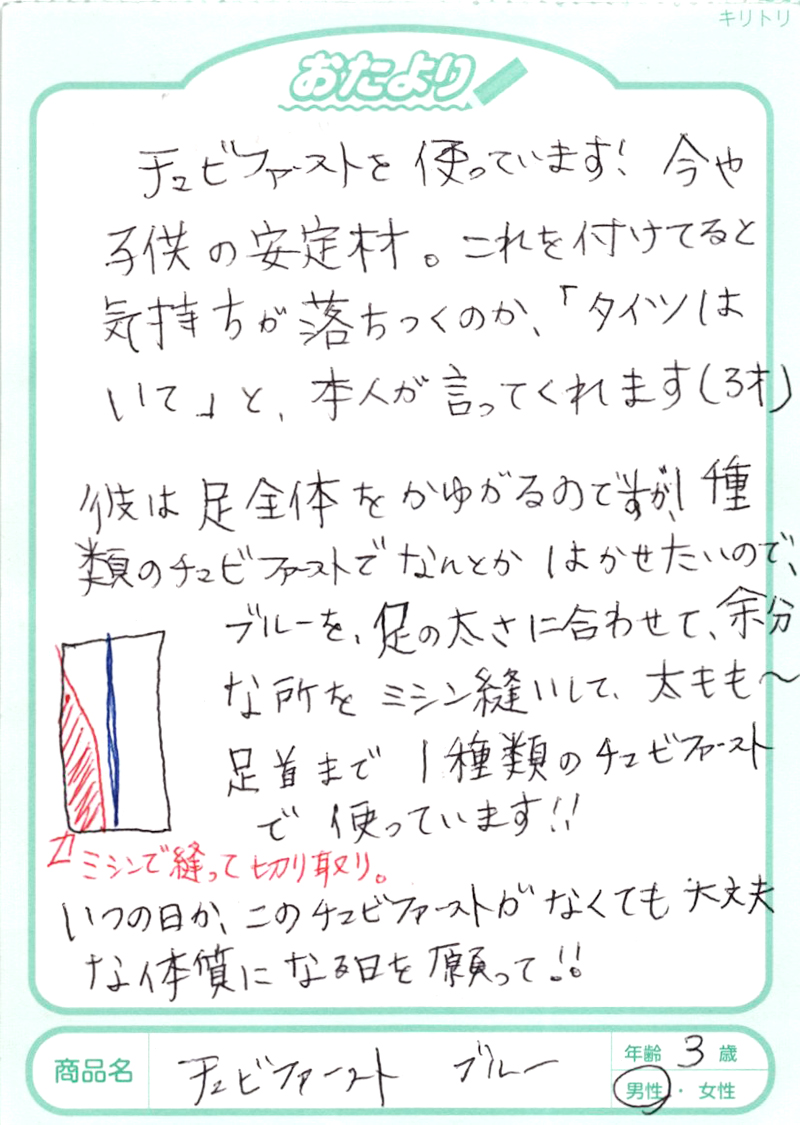 キリトリ
おたより
チュビファーストを使っています！今や
子供の安定材。これを付けてると
気持ちが落ちつくのか、「タイツは
いて」と、本人が言ってくれます(3才)
彼は足全体をかゆがるのですが、1種
類のチュビファーストでなんとかはかせたいので、
ブルーを、足の太さに合わせて、余分
な所をミシン縫いして、太もも〜
足首まで1種類のチュビファースト
で使っています!!
ミシンで縫って切り取り。
いつの日か、このチュビファーストがなくても大丈夫
な体質になる日を願って!!
商品名 チュビファースト ブルー
年齢 3 歳
男性・女性